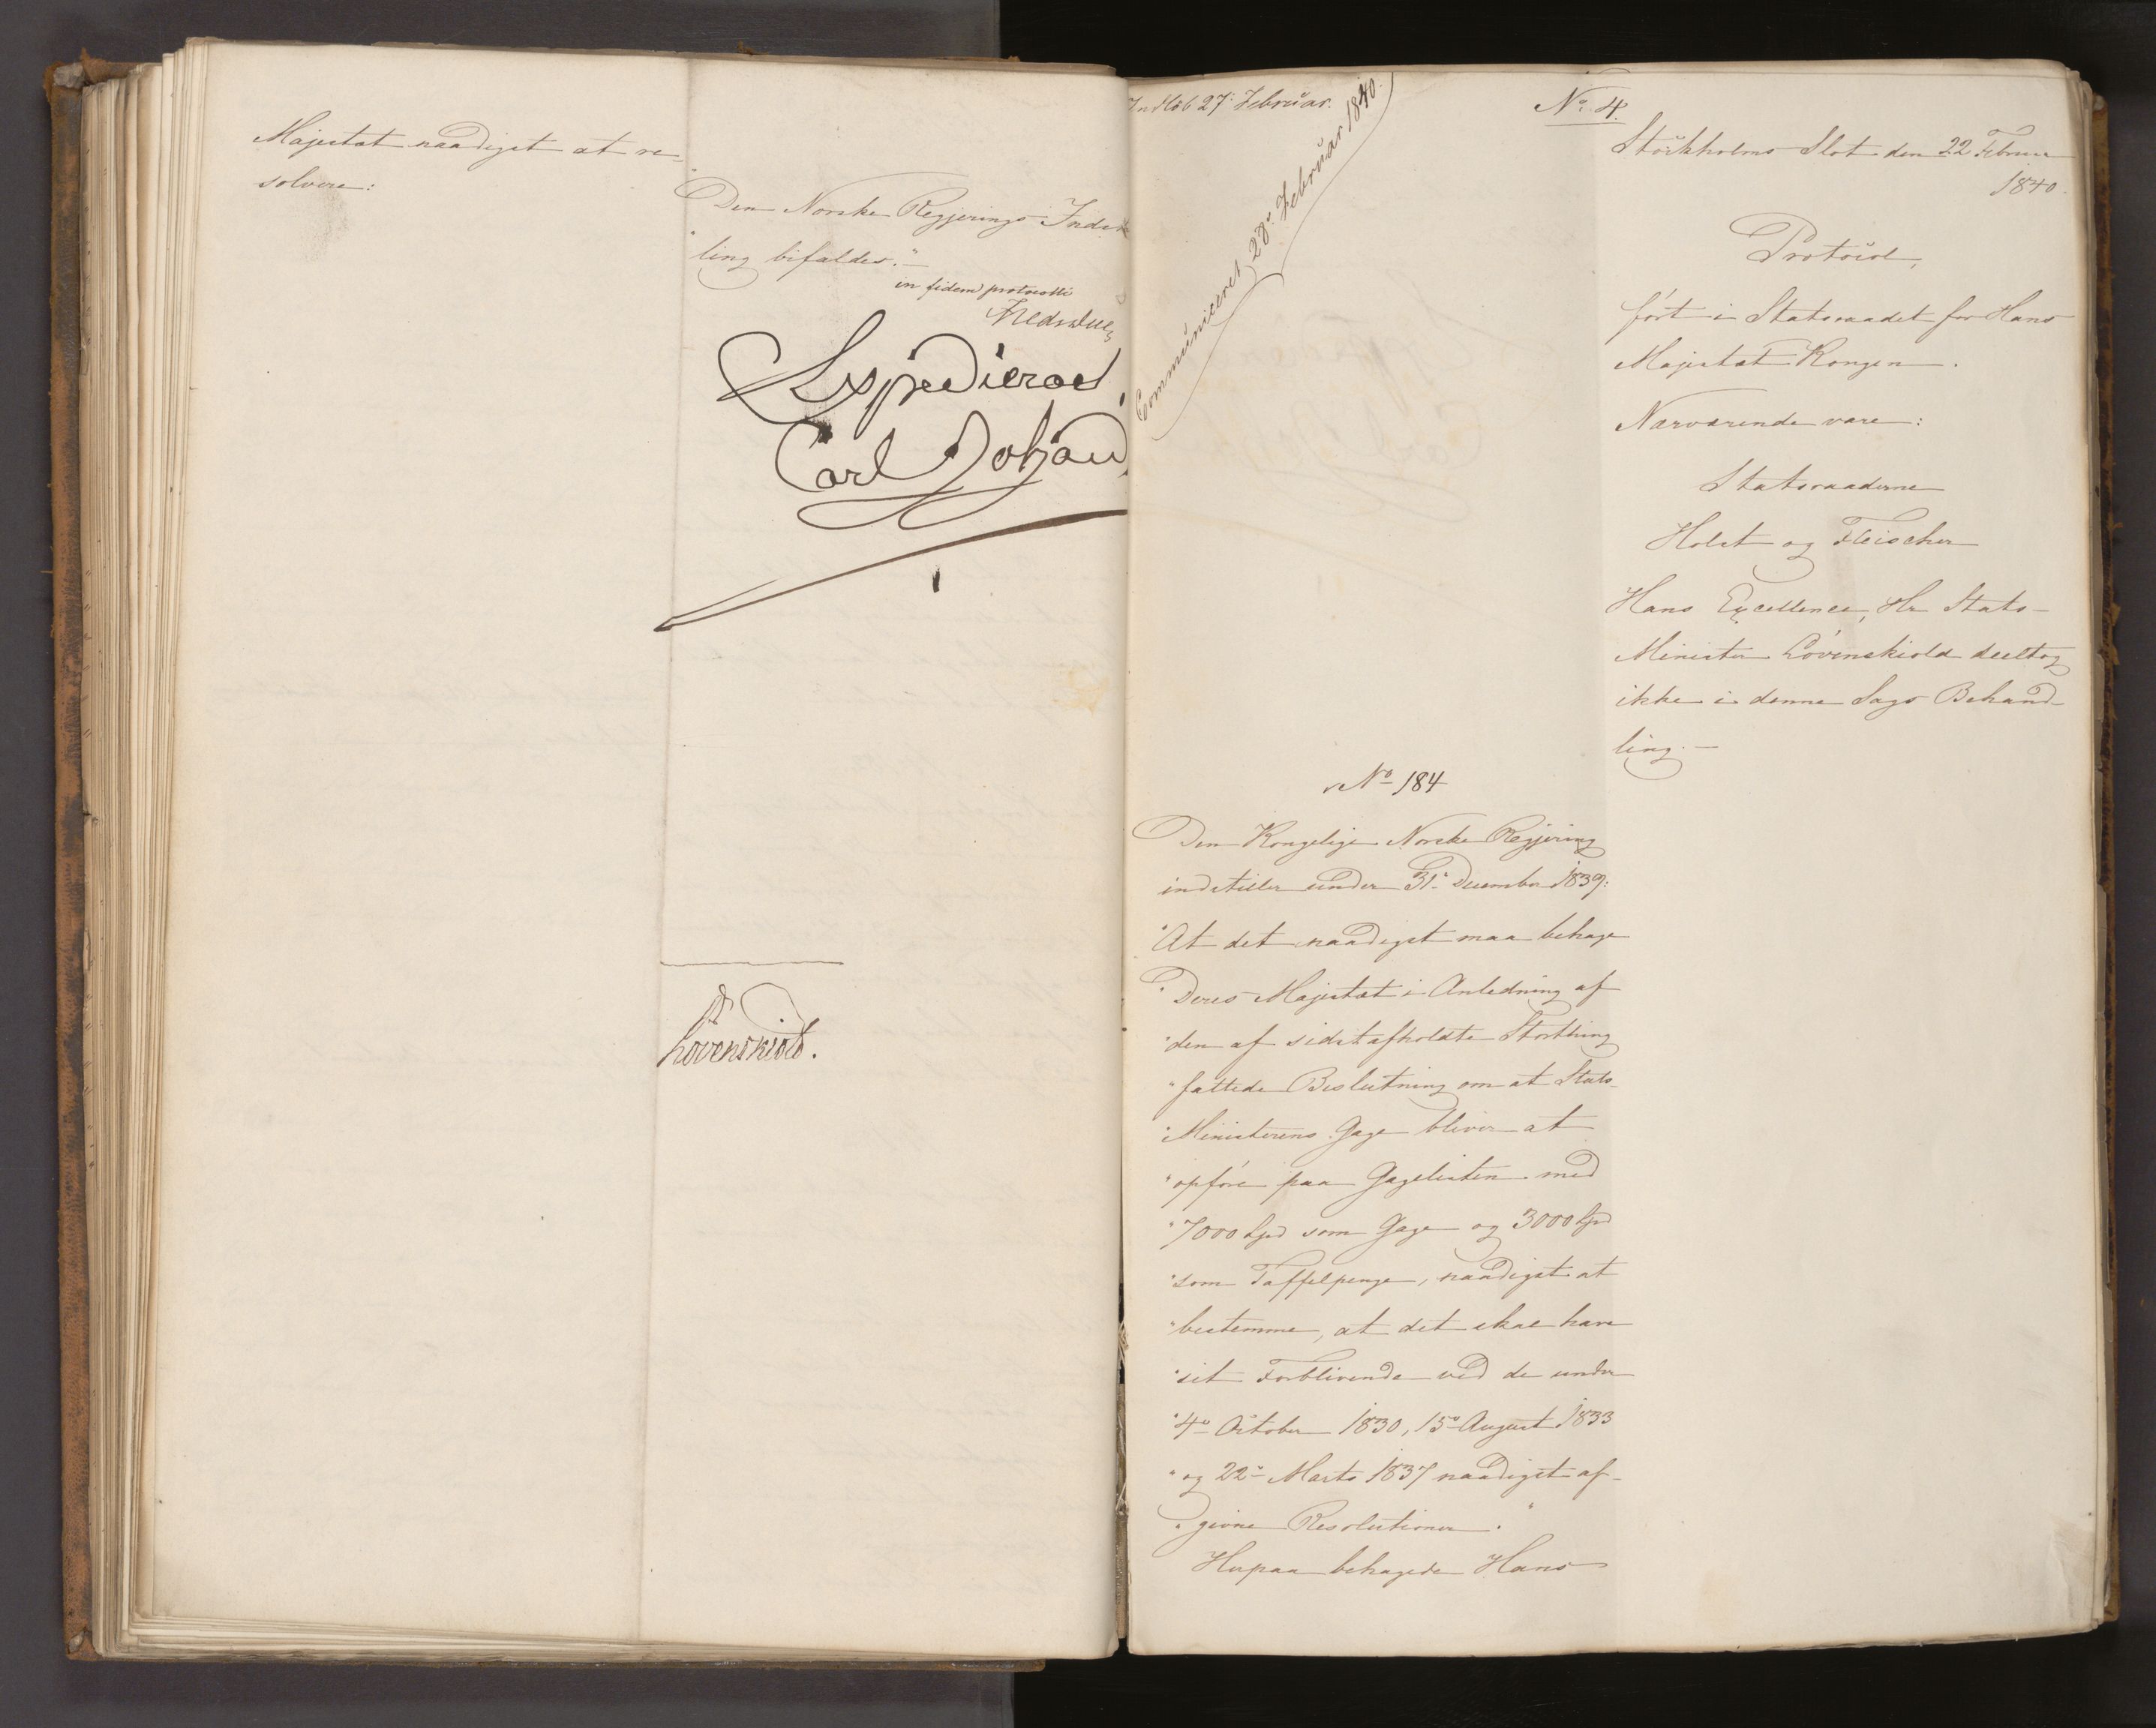 Majestæt naadigst at re-
solvere:
Den Norske Regjerings Indstil
"ling bifaldes."—
in fidem protocolli
Fredr Due
Expedieras
Carl Johan
Løvenskiold.
Indkob 27de Februar.
Communiceret 28de Februar 1840.
No 4.
Stockholms Slot den 22 Februar
1840.
Protocol,
ført i Statsraadet for Hans
Majestæt Kongen.
Nærværende vare:
Statsraaderne
Holst og Fleischer
Hans Excellence, Hr Stats-
Minister Løvenskiold deeltog
ikke i denne Sags Behand-
ling.—
No 184
Den Kongelige Norske Regjering
indstiller under 31te December 1839:
"At det naadigst maa behage
"Deres Majestæt i Anledning af
"den af sidstafholdte Storthing
"fattede Beslutning om at Stats-
"Ministerens Gage bliver at
"opføre paa Gagelisten med
"7000 Spd som Gage og 3000 Spd
"som Taffelpenge, naadigst at
"bestemme, at det skal have
"sit Forblivende ved de under
"4de October 1830, 15de August 1833
"og 22de Marts 1837 naadigst af-
"givne Resolutioner."
Herpaa behagede Hans